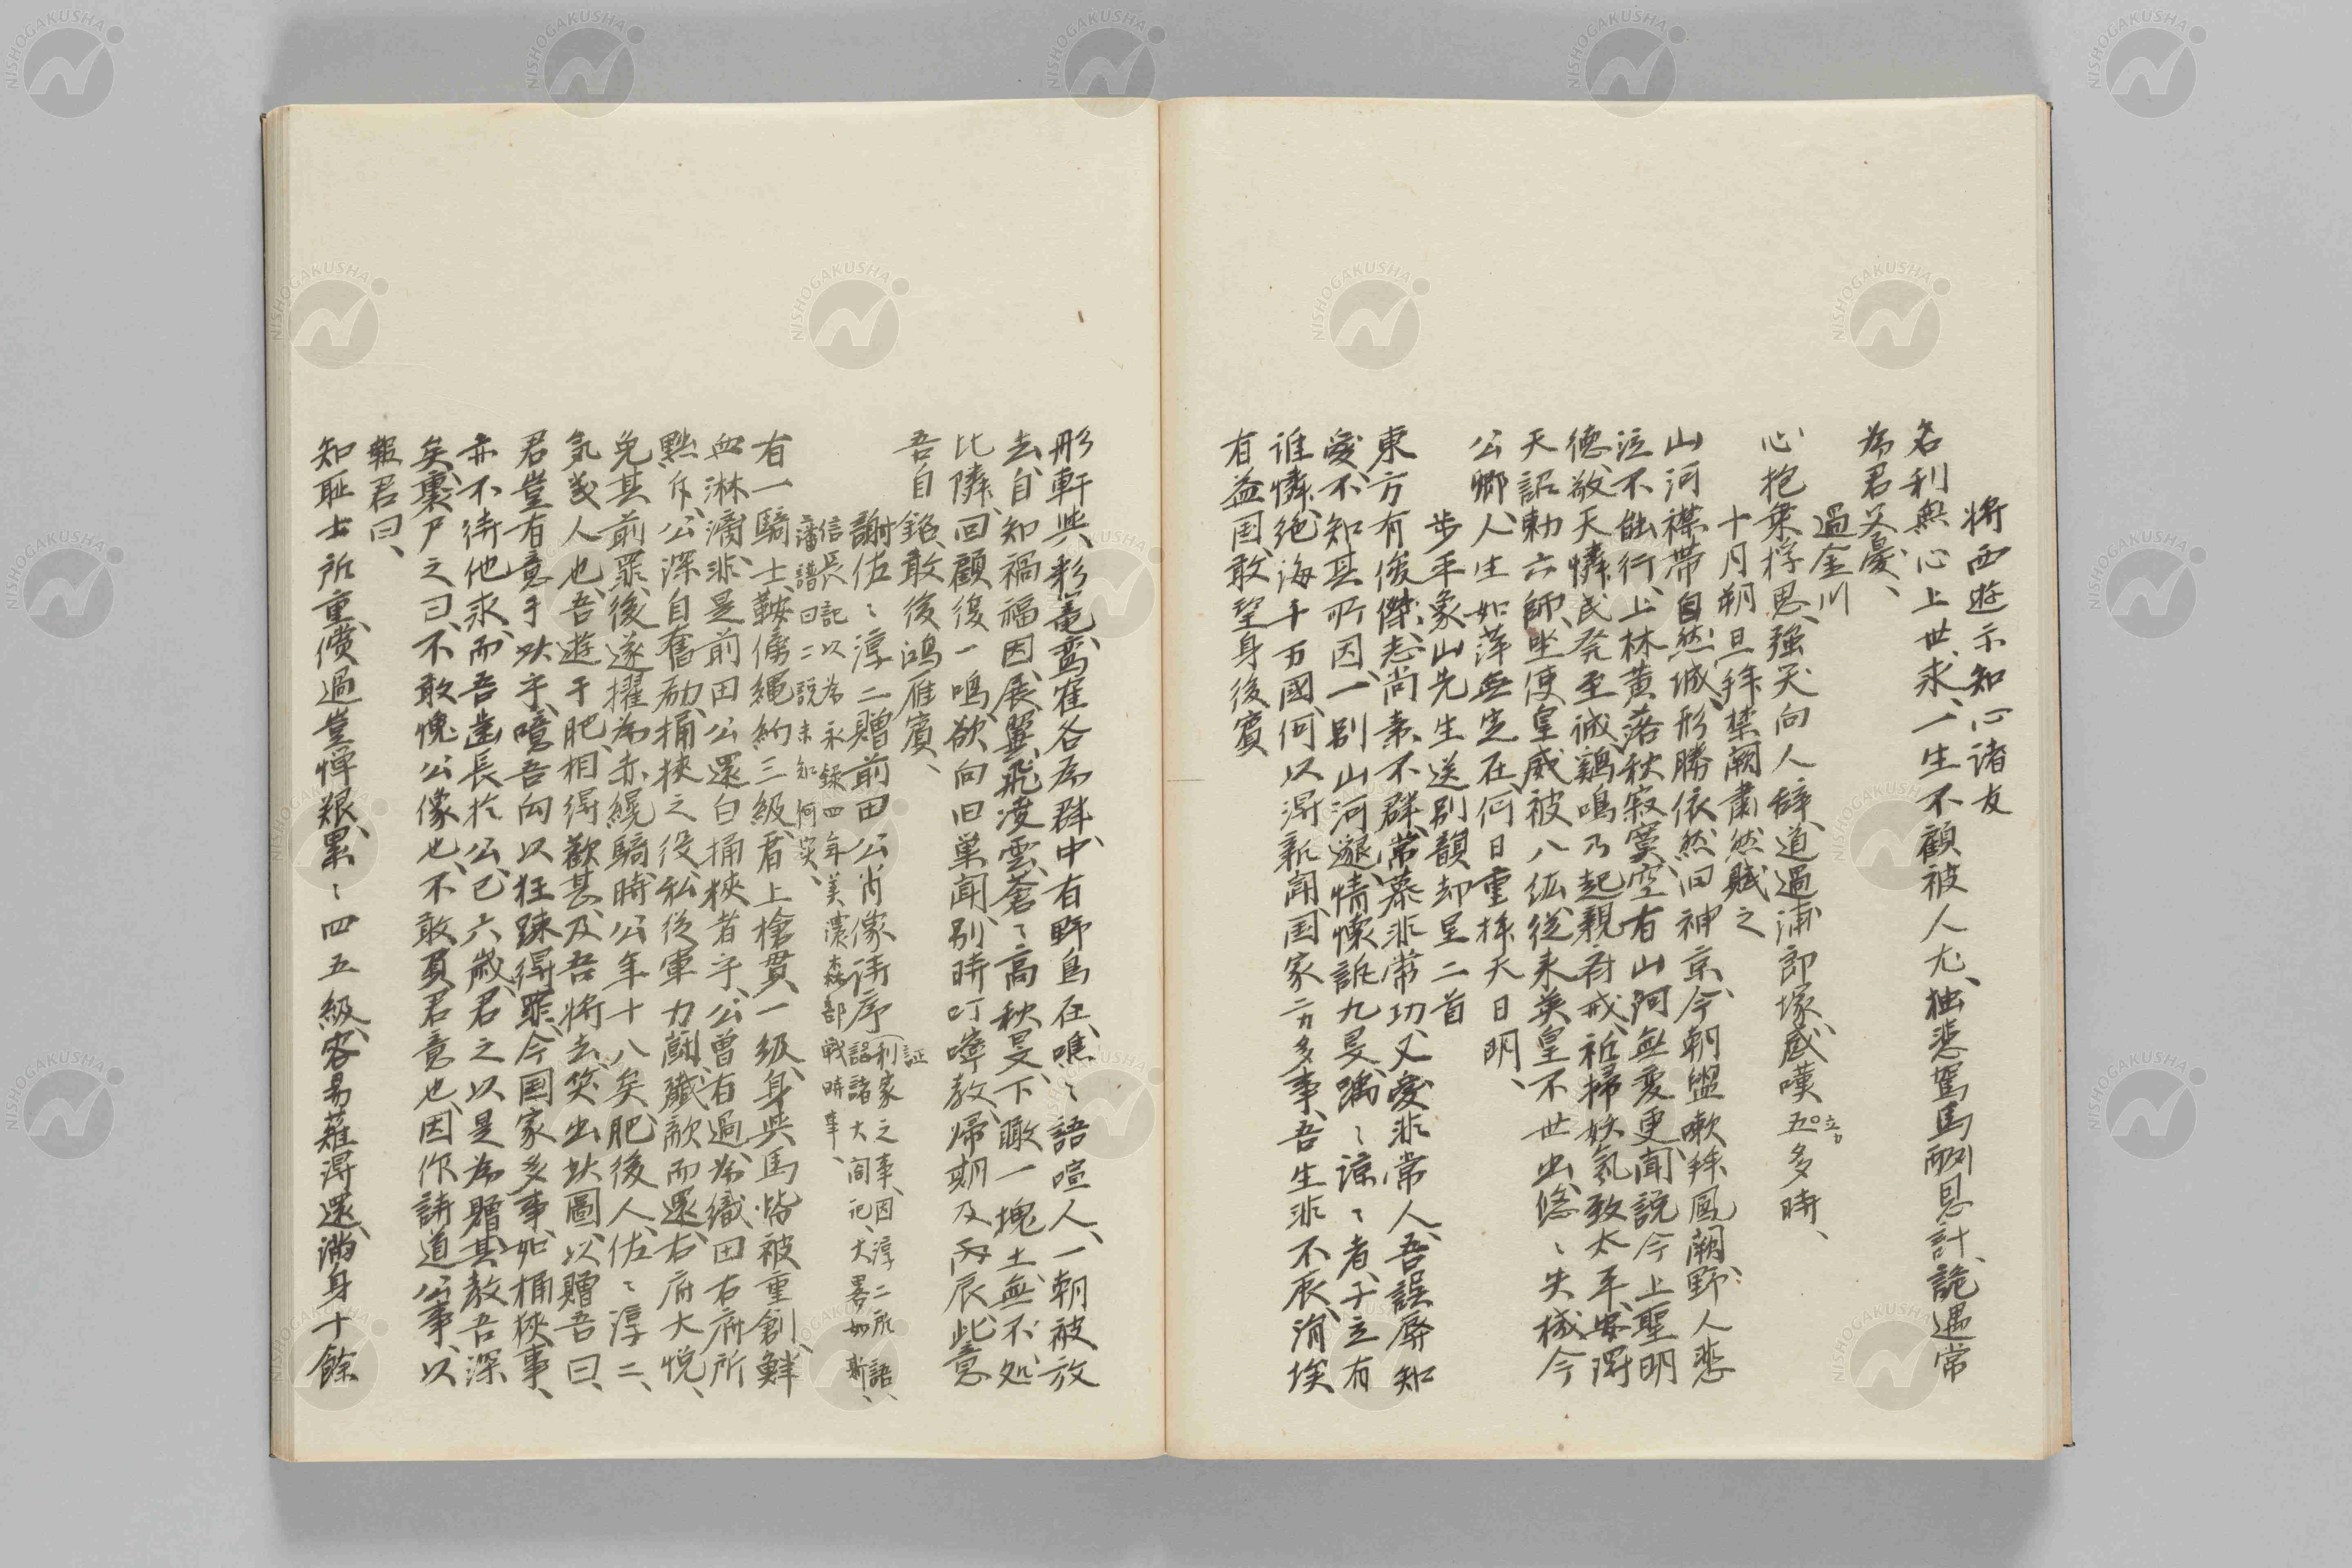 将西遊示知心诸友
名利無心上世求、一生不顧被人尤、独悲駑馬酬恩計、詭遇常
為君父憂、
過金川
心抱乗桴思、強笑向人辞、道過浦郎塚、感嘆立多時、
十月朔旦拝禁闕肅然賦之
山河襟帯自然城、形勝依然旧神京、今朝盥嗽拝鳳闕、野人悲
泣不能行、上林黄落秋寂寞、空有山河無変更、聞説今上聖明
徳、敬天憐民発至誠、鶏鳴乃起親斎戒、祈掃妖氛致太平、安得
天詔勅六師、坐使皇威被八紘、従来英皇不世出、悠〻失機今
公卿、人生如萍無定在、何日重拝天日明、
步平象山先生送别韻却呈二首
東方有俊傑、志尚素不群、常慕非常功、又愛非常人、吾誤辱知
愛、不知其所因、一別山河邈、情懐訴九旻、踽〻諒〻者、孑立有
谁憐、絶海千万國、何以得新聞、国家方多事、吾生非不辰、涓埃
有益国、敢望身後賓
彤軒与彩竜、鸞隺各為群、中有野鳥在、噍〻語喧人、一朝被放
去、自知禍福因、展翼飛凌雲、蒼〻高秋旻、下瞰一塊土、無不処
比隣、回顧復一鳴、欲向旧巣聞、別時叮嚀教、帰期及丙辰、此意
吾自銘、敢後鴻雁賓、
謝佐〻淳二贈前田公肖像詩序
証
利家之事、因淳二所語、
詔諸大閤記、大畧如斯、
信長記以為永録四年美濃森部戦時事、
藩譜曰二説未知何实、
有一騎士、鞍傍縄約三級、君上槍貫一級、身与馬皆被重創、鮮
血淋漓、非是前田公還自桶狭者乎、公曽有過、為織田右府所
黜斥、公深自奮励、桶狭之役、私従軍力闘、馘敵而還、右府大悦、
免其前罪、後遂擢為赤縨騎、時公年十八矣、肥後人、佐〻淳二、
気義人也、吾遊于肥、相得歓甚、及吾将去、笑出此圖、以贈吾曰、
君豈有意于此乎、噫吾囟以狂踈得罪、今国家多事、如桶狭事、
亦不待他求、而吾歯長於公、已六歳、君之以是為贈、其教吾深
矣、裹尸之日、不敢愧公像也、不敢負君意也、因作詩道公事、以
報君曰、
知耻士所重、償過豈憚艱、累〻四五級、容易薙得還、満身十餘